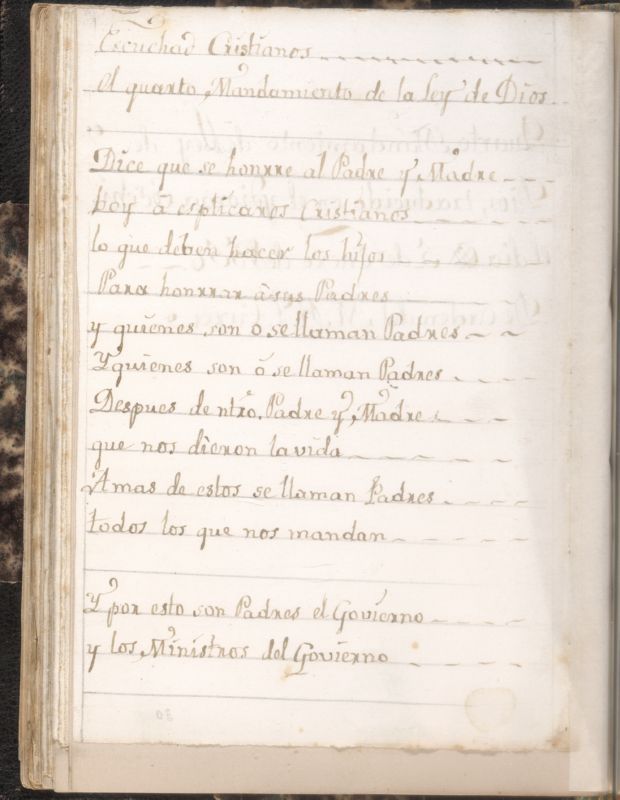 Escuchad Cristianos
el quarto Mandamiento de la Ley de Dios
Dice que se honrre al Padre y Madre
hoy a esplicaros Cristianos
lo que deben hacer los hijos
Para honrrar a sus Padres
y quienes son o se llaman Padres
Y quienes son ó se llaman Padres
Despues de ntro. Padre y Madre
que nos dieron la vida
Amas de estos se llaman Padres
todos los que nos mandan
Y por esto son Padres el Govierno
y los Ministros del Govierno